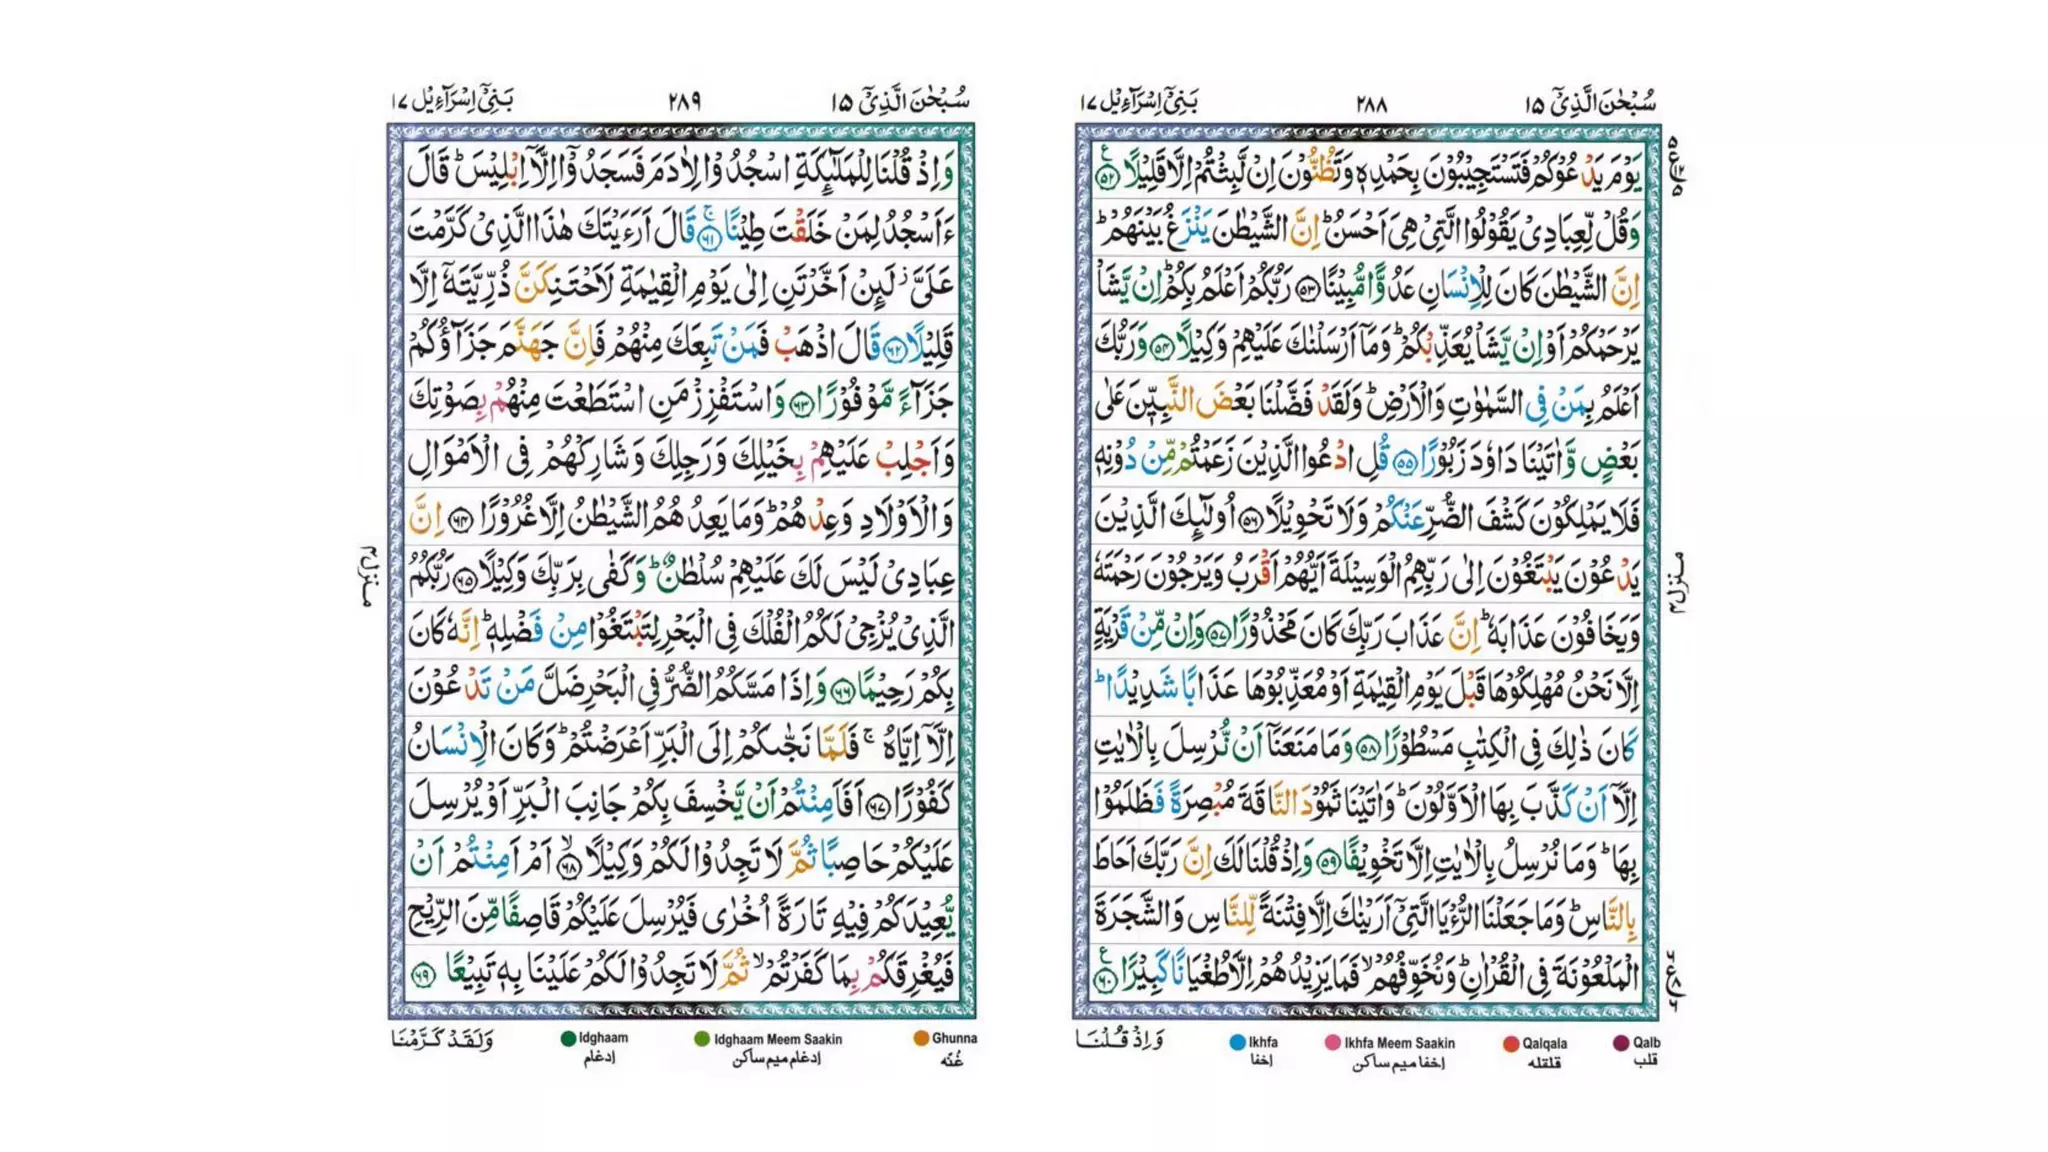 سُبْحٰنَ الَّذِيْۤ ١٥
٢٨٨
بَنِيْۤ اِسْرَآءِيْل ١٧
يَوْمَ يَدْعُوْكُمْ فَتَسْتَجِيْبُوْنَ بِحَمْدِهٖ وَتَظُنُّوْنَ اِنْ لَّبِثْتُمْ اِلَّا قَلِيْلًا ۝٥٢ ع
وَقُلْ لِّعِبَادِيْ يَقُوْلُوا الَّتِيْ هِيَ اَحْسَنُ ؕ اِنَّ الشَّيْطٰنَ يَنْزَغُ بَيْنَهُمْ ؕ
اِنَّ الشَّيْطٰنَ كَانَ لِلْاِنْسَانِ عَدُوًّا مُّبِيْنًا ۝٥٣ رَبُّكُمْ اَعْلَمُ بِكُمْ ؕ اِنْ يَّشَاْ
يَرْحَمْكُمْ اَوْ اِنْ يَّشَاْ يُعَذِّبْكُمْ ؕ وَمَاۤ اَرْسَلْنٰكَ عَلَيْهِمْ وَكِيْلًا ۝٥٤ وَرَبُّكَ
اَعْلَمُ بِمَنْ فِي السَّمٰوٰتِ وَالْاَرْضِ ؕ وَلَقَدْ فَضَّلْنَا بَعْضَ النَّبِيّٖنَ عَلٰى
بَعْضٍ وَّاٰتَيْنَا دَاوٗدَ زَبُوْرًا ۝٥٥ قُلِ ادْعُوا الَّذِيْنَ زَعَمْتُمْ مِّنْ دُوْنِهٖ
فَلَا يَمْلِكُوْنَ كَشْفَ الضُّرِّ عَنْكُمْ وَلَا تَحْوِيْلًا ۝٥٦ اُولٰٓئِكَ الَّذِيْنَ
يَدْعُوْنَ يَبْتَغُوْنَ اِلٰى رَبِّهِمُ الْوَسِيْلَةَ اَيُّهُمْ اَقْرَبُ وَيَرْجُوْنَ رَحْمَتَهٗ
وَيَخَافُوْنَ عَذَابَهٗ ؕ اِنَّ عَذَابَ رَبِّكَ كَانَ مَحْذُوْرًا ۝٥٧ وَاِنْ مِّنْ قَرْيَةٍ
اِلَّا نَحْنُ مُهْلِكُوْهَا قَبْلَ يَوْمِ الْقِيٰمَةِ اَوْ مُعَذِّبُوْهَا عَذَابًا شَدِيْدًا ؕ
كَانَ ذٰلِكَ فِي الْكِتٰبِ مَسْطُوْرًا ۝٥٨ وَمَا مَنَعَنَاۤ اَنْ نُّرْسِلَ بِالْاٰيٰتِ
اِلَّاۤ اَنْ كَذَّبَ بِهَا الْاَوَّلُوْنَ ؕ وَاٰتَيْنَا ثَمُوْدَ النَّاقَةَ مُبْصِرَةً فَظَلَمُوْا
بِهَا ؕ وَمَا نُرْسِلُ بِالْاٰيٰتِ اِلَّا تَخْوِيْفًا ۝٥٩ وَاِذْ قُلْنَا لَكَ اِنَّ رَبَّكَ اَحَاطَ
بِالنَّاسِ ؕ وَمَا جَعَلْنَا الرُّءْيَا الَّتِيْۤ اَرَيْنٰكَ اِلَّا فِتْنَةً لِّلنَّاسِ وَالشَّجَرَةَ
الْمَلْعُوْنَةَ فِي الْقُرْاٰنِ ؕ وَنُخَوِّفُهُمْ ۙ فَمَا يَزِيْدُهُمْ اِلَّا طُغْيَانًا كَبِيْرًا ۝٦٠ ع
منزل ٤
وَاِذْ قُلْنَا
Ikhfa اخفا
Ikhfa Meem Saakin اخفا ميم ساكن
Qalqala قلقله
Qalb قلب
سُبْحٰنَ الَّذِيْۤ ١٥
٢٨٩
بَنِيْۤ اِسْرَآءِيْل ١٧
وَاِذْ قُلْنَا لِلْمَلٰٓئِكَةِ اسْجُدُوْا لِاٰدَمَ فَسَجَدُوْۤا اِلَّاۤ اِبْلِيْسَ ؕ قَالَ
ءَاَسْجُدُ لِمَنْ خَلَقْتَ طِيْنًا ۝٦١ ۚ قَالَ اَرَءَيْتَكَ هٰذَا الَّذِيْ كَرَّمْتَ
عَلَيَّ ؗ لَئِنْ اَخَّرْتَنِ اِلٰى يَوْمِ الْقِيٰمَةِ لَاَحْتَنِكَنَّ ذُرِّيَّتَهٗۤ اِلَّا
قَلِيْلًا ۝٦٢ قَالَ اذْهَبْ فَمَنْ تَبِعَكَ مِنْهُمْ فَاِنَّ جَهَنَّمَ جَزَآؤُكُمْ
جَزَآءً مَّوْفُوْرًا ۝٦٣ وَاسْتَفْزِزْ مَنِ اسْتَطَعْتَ مِنْهُمْ بِصَوْتِكَ
وَاَجْلِبْ عَلَيْهِمْ بِخَيْلِكَ وَرَجِلِكَ وَشَارِكْهُمْ فِي الْاَمْوَالِ
وَالْاَوْلَادِ وَعِدْهُمْ ؕ وَمَا يَعِدُهُمُ الشَّيْطٰنُ اِلَّا غُرُوْرًا ۝٦٤ اِنَّ
عِبَادِيْ لَيْسَ لَكَ عَلَيْهِمْ سُلْطٰنٌ ؕ وَكَفٰى بِرَبِّكَ وَكِيْلًا ۝٦٥ رَبُّكُمُ
الَّذِيْ يُزْجِيْ لَكُمُ الْفُلْكَ فِي الْبَحْرِ لِتَبْتَغُوْا مِنْ فَضْلِهٖ ؕ اِنَّهٗ كَانَ
بِكُمْ رَحِيْمًا ۝٦٦ وَاِذَا مَسَّكُمُ الضُّرُّ فِي الْبَحْرِ ضَلَّ مَنْ تَدْعُوْنَ
اِلَّاۤ اِيَّاهُ ۚ فَلَمَّا نَجّٰىكُمْ اِلَى الْبَرِّ اَعْرَضْتُمْ ؕ وَكَانَ الْاِنْسَانُ
كَفُوْرًا ۝٦٧ اَفَاَمِنْتُمْ اَنْ يَّخْسِفَ بِكُمْ جَانِبَ الْبَرِّ اَوْ يُرْسِلَ
عَلَيْكُمْ حَاصِبًا ثُمَّ لَا تَجِدُوْا لَكُمْ وَكِيْلًا ۝٦٨ ۙ اَمْ اَمِنْتُمْ اَنْ
يُّعِيْدَكُمْ فِيْهِ تَارَةً اُخْرٰى فَيُرْسِلَ عَلَيْكُمْ قَاصِفًا مِّنَ الرِّيْحِ
فَيُغْرِقَكُمْ بِمَا كَفَرْتُمْ ۙ ثُمَّ لَا تَجِدُوْا لَكُمْ عَلَيْنَا بِهٖ تَبِيْعًا ۝٦٩
منزل ٤
وَلَقَدْ كَرَّمْنَا
Idghaam ادغام
Idghaam Meem Saakin ادغام ميم ساكن
Ghunna غُنّه